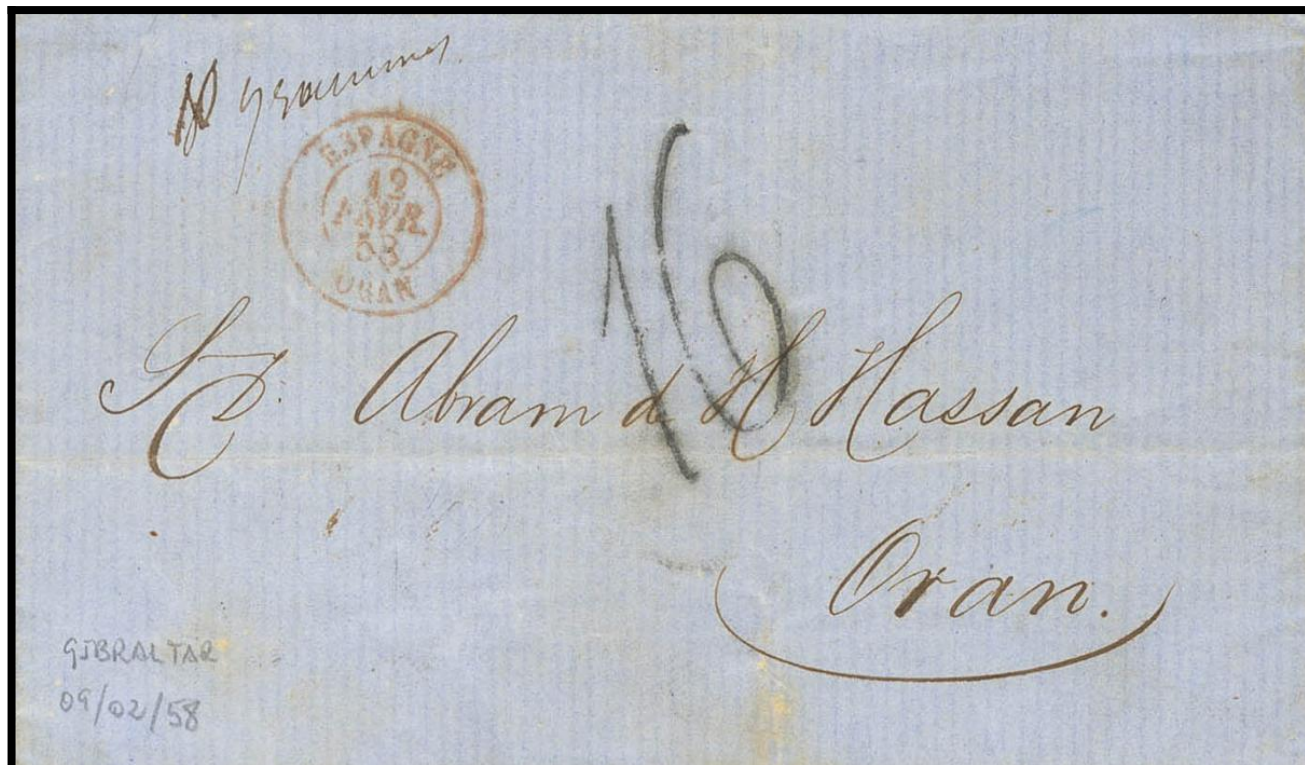 grammes
ESPAGNE
12
FEVR.
58
ORAN
16
Abram d H Hassan
Oran.
GIBRALTAR
09/02/58